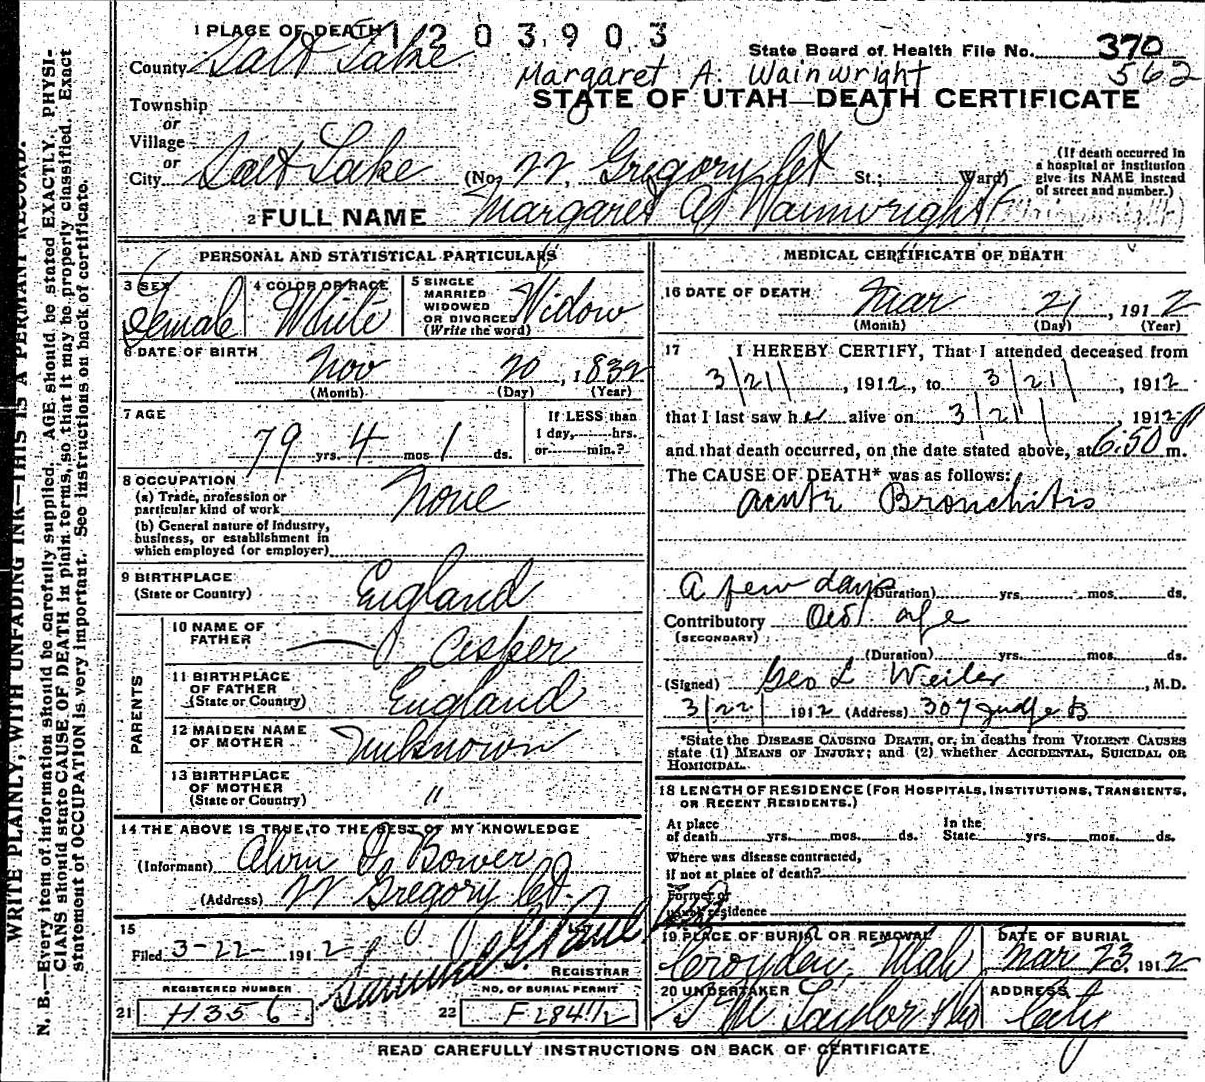 WRITE PLAINLY, WITH UNFADING INK—THIS IS A PERMANENT RECORD.
N. B.—Every item of information should be carefully supplied. AGE should be stated EXACTLY, PHYSI-
CIANS should state CAUSE OF DEATH in plain terms, so that it may be properly classified. Exact
statement of OCCUPATION is very important. See instructions on back of certificate.
1 PLACE OF DEATH 1203903
State Board of Health File No. 370
562
County Salt Lake
Margaret A. Wainwright
STATE OF UTAH—DEATH CERTIFICATE
Township
or
Village
or
City Salt Lake (No. 22, Gregory Ct St.; Ward)
(If death occurred in
a hospital or institution
give its NAME instead
of street and number.)
2 FULL NAME Margaret A. Wainwright
PERSONAL AND STATISTICAL PARTICULARS
3 SEX Female
4 COLOR OR RACE White
5 SINGLE
MARRIED
WIDOWED
OR DIVORCED
(Write the word) Widow
6 DATE OF BIRTH
Nov 20, 1832
(Month) (Day) (Year)
7 AGE
79 yrs. 4 mos. 1 ds.
If LESS than
1 day, hrs.
or min.?
8 OCCUPATION
(a) Trade, profession or
particular kind of work None
(b) General nature of industry,
business, or establishment in
which employed (or employer)
9 BIRTHPLACE
(State or Country) England
PARENTS
10 NAME OF
FATHER Cesper
11 BIRTHPLACE
OF FATHER
(State or Country) England
12 MAIDEN NAME
OF MOTHER Unknown
13 BIRTHPLACE
OF MOTHER
(State or Country) "
14 THE ABOVE IS TRUE TO THE BEST OF MY KNOWLEDGE
(Informant) Alvin G. Bower
(Address) 22 Gregory Ct.
15
Filed 3-22- 1912 Samuel G. Paul
REGISTRAR
REGISTERED NUMBER
21 H356
NO. OF BURIAL PERMIT
22 F 2841/2
MEDICAL CERTIFICATE OF DEATH
16 DATE OF DEATH
Mar 21, 1912
(Month) (Day) (Year)
17 I HEREBY CERTIFY, That I attended deceased from
3/21/, 1912, to 3/21/, 1912
that I last saw her alive on 3/21/ 1912
and that death occurred, on the date stated above, at 6:50 P m.
The CAUSE OF DEATH* was as follows:
Acute Bronchitis
A few days (Duration) yrs. mos. ds.
Contributory Old age
(SECONDARY)
(Duration) yrs. mos. ds.
(Signed) Geo L Weiler, M.D.
3/22/ 1912 (Address) 307 Judge B
*State the DISEASE CAUSING DEATH, or, in deaths from VIOLENT CAUSES
state (1) MEANS OF INJURY; and (2) whether ACCIDENTAL, SUICIDAL OR
HOMICIDAL.
18 LENGTH OF RESIDENCE (FOR HOSPITALS, INSTITUTIONS, TRANSIENTS,
OR RECENT RESIDENTS.)
At place
of death yrs. mos. ds.
In the
State yrs. mos. ds.
Where was disease contracted,
if not at place of death?
Former or
usual residence
19 PLACE OF BURIAL OR REMOVAL
Croyden, Utah
DATE OF BURIAL
Mar 23, 1912
20 UNDERTAKER
S M Taylor & Co
ADDRESS
City
READ CAREFULLY INSTRUCTIONS ON BACK OF CERTIFICATE.